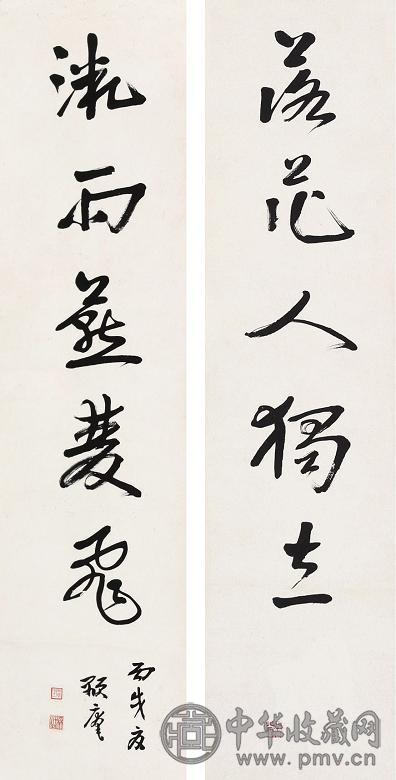 落花人獨立
微雨燕雙飛
丙戌夏
中华收藏网
www.pmv.cn